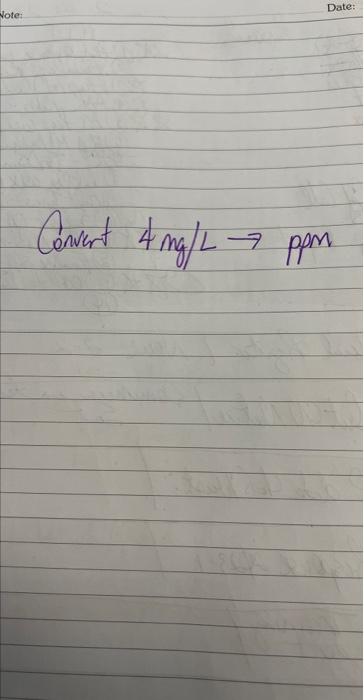 Note: Date:
Convert 4 mg/L → ppm